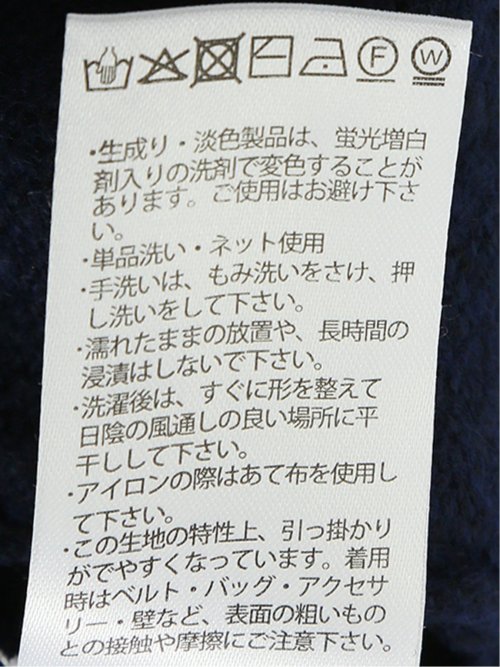 F W
・生成り・淡色製品は、蛍光増白
剤入りの洗剤で変色することが
あります。ご使用はお避け下さ
い。
・単品洗い・ネット使用
・手洗いは、もみ洗いをさけ、押
し洗いをして下さい。
・濡れたままの放置や、長時間の
浸漬はしないで下さい。
・洗濯後は、すぐに形を整えて
日陰の風通しの良い場所に平
干しして下さい。
・アイロンの際はあて布を使用し
て下さい。
・この生地の特性上、引っ掛かり
がでやすくなっています。着用
時はベルト・バッグ・アクセサ
リー・壁など、表面の粗いもの
との接触や摩擦にご注意下さい。